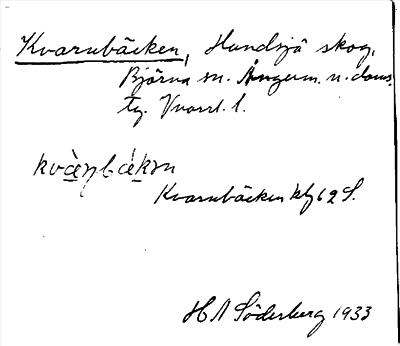 Kvarnbäcken, Hundsjö skog,
Björna sn. Ångerm. n. doms.
tg. Vnorrl. l.
Kvarnbäcken 62 S.
H A Söderberg 1933